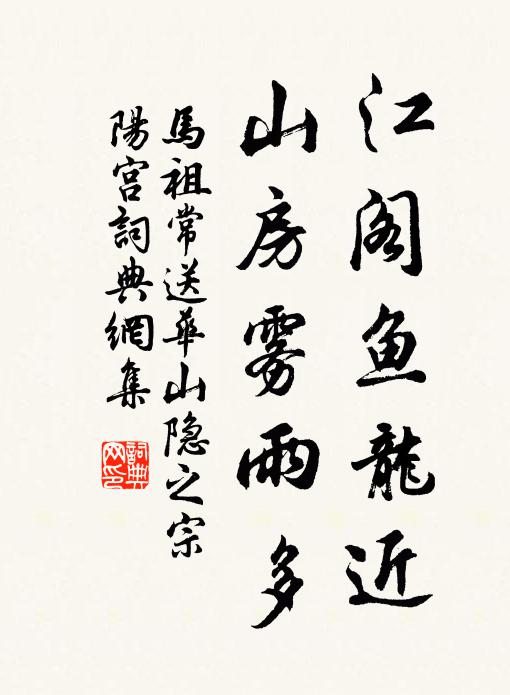 江阁鱼龍近
山房雾雨多
馬祖常送華山隐之宗
陽宮詞典網集
詞典网印